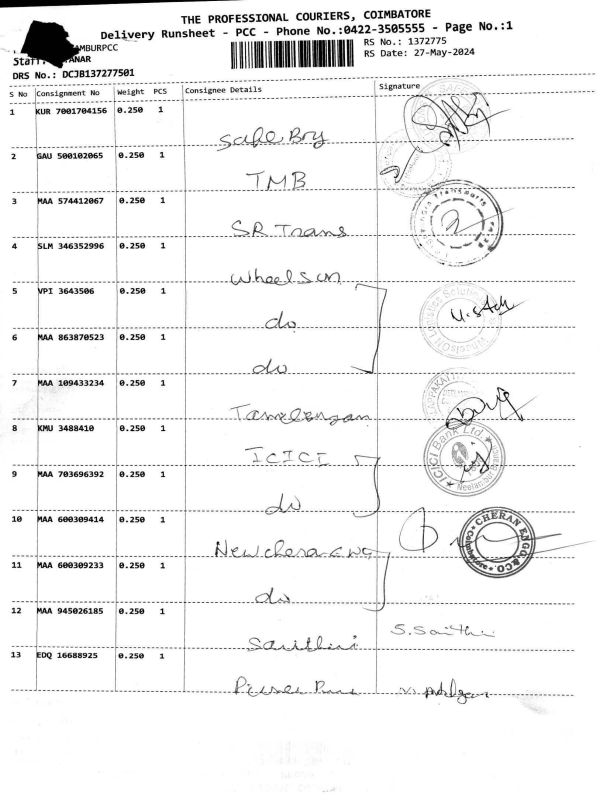 THE PROFESSIONAL COURIERS, COIMBATORE
Delivery Runsheet - PCC - Phone No.:0422-3505555 - Page No.:1
AMBURPCC
RS No.: 1372775
Staff: ANAR
RS Date: 27-May-2024
DRS No.: DCJB137277501
S No Consignment No Weight PCS Consignee Details Signature
1 KUR 7001704156 0.250 1
Safe Boy
2 GAU 500102065 0.250 1
TMB
3 MAA 574412067 0.250 1
SR Trans
4 SLM 346352996 0.250 1
Wheelsun
5 VPI 3643506 0.250 1
do
6 MAA 863870523 0.250 1
do
7 MAA 109433234 0.250 1
8 KMU 3488410 0.250 1
ICICI
ICICI Bank Ltd.
Neelambur Branch
9 MAA 703696392 0.250 1
do
10 MAA 600309414 0.250 1
CHERAN ENGG.&CO.
Coimbatore
11 MAA 600309233 0.250 1
do
12 MAA 945026185 0.250 1
Savithri S. Savithri
13 EDQ 16688925 0.250 1